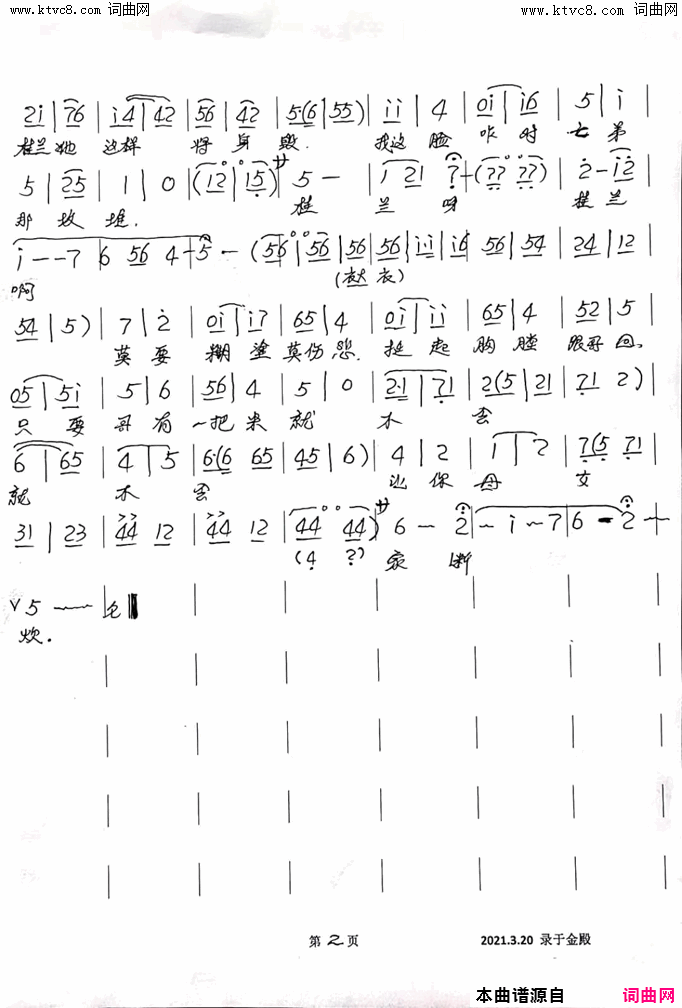 www.ktvc8.com 词曲网 www.ktvc8.com 词曲网
2i | 76 | i4 | 42 | 56 | 42 | 5·(6 | 55) | ii | 4 | 0i | i6 | 5 | i |
桂兰她 这样 将 身 毁. 我这 脸 咋 对 七 弟
5 | 25 | 1 | 0 | (12 | 15) サ 5 — | 1 21 ? — (?? ??) | 2 — i2 |
那 坟 堆. 桂 兰 呀 桂 兰
i — — 7 | 6 56 4 — 5 — (56 | 56 | 56 | 56 | ii | i6 | 56 | 54 | 24 | 12 |
啊
54 | 5) | 7 | 2 | 0i | i7 | 65 | 4 | 0i | ii | 65 | 4 | 52 | 5 |
莫 要 糊 塗 莫伤 悲. 挺 起 胸 膛 跟哥 回,
05 | 5i | 5 | 6 | 56 | 4 | 5 | 0 | 2·1 | 71 | 2(5 | 21 | 71 2) |
只 要 哥 有 一把 米 就 不
6 | 65 | 4 | 5 | 6·(6 65 | 45 | 6) | 4 | 2 | 1 | 2 | 7(5 71 |
就 不 让 你 母 女
31 | 23 | 44 12 | 44 12 | 44 44) サ 6 — 2 | — i — 7 | 6 — 2 —
(4 ?) 家 断
∨ 5 —— |
炊.
第 2 页 2021.3.20 录于金殿
本曲谱源自 词曲网